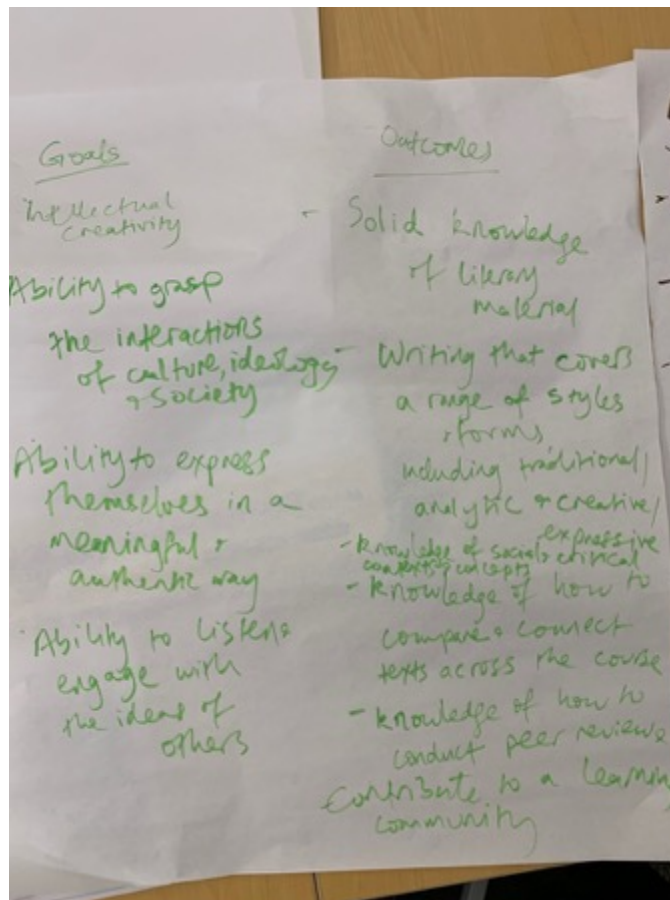 Goals
Intellectual
creativity
Ability to grasp
the interactions
of culture, ideology
+ society
Ability to express
themselves in a
meaningful +
authentic way
Ability to listen +
engage with
the ideas of
others
Outcomes
- Solid knowledge
of literary
material
- Writing that covers
a range of styles
+ forms,
including traditional/
analytic + creative/
expressive
- knowledge of social + critical
contexts + concepts
- knowledge of how to
compare + connect
texts across the course
- knowledge of how to
conduct peer reviews
Contribute to a learning
community